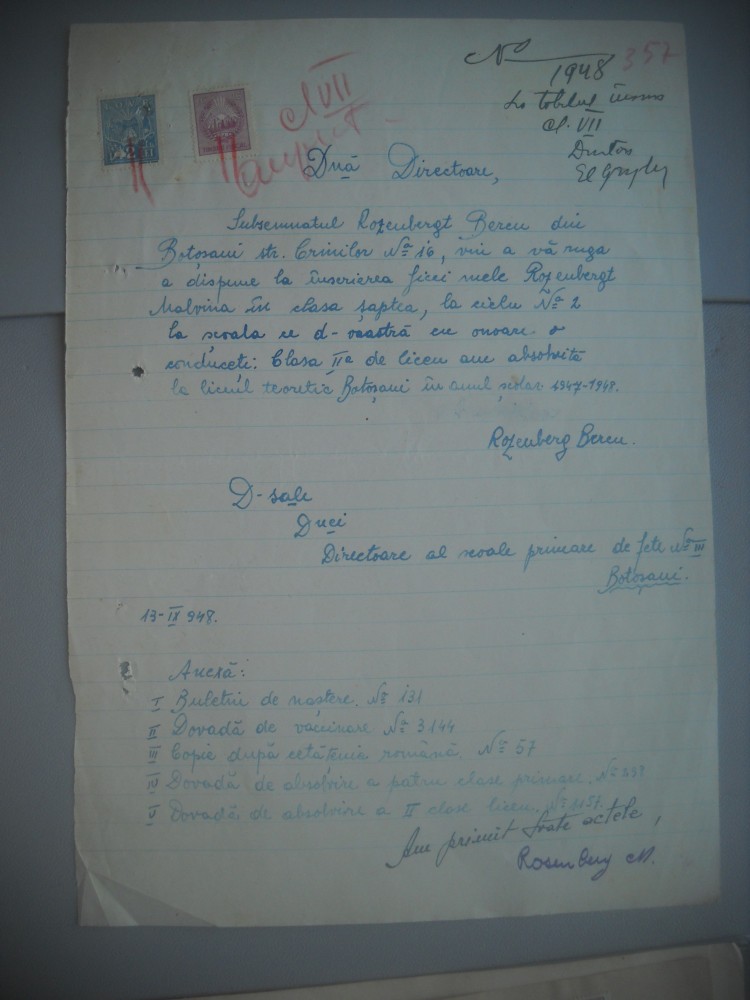 No 357
1948
cl. VII
cl. VII
Dnă Directoare,
Subsemnatul Rozenbergt Bercu din
Botoșani str. Crinilor No 16, vin a vă ruga
a dispune la înscrierea ficei mele Rozenbergt
Malvina în clasa șaptea, la ciclu No 2
la școala ce d-voastră cu onoare o
conduceți: Clasa IIa de liceu am absolvită
la liceul teoretic Botoșani în anul școlar 1947-1948.
Rozenberg Bercu.
D-sale
Dnei
Directoare al școale primare de fete No III
Botoșani.
13-IX 948.
Anexă:
I Buletin de naștere. No 131
II Dovadă de vaccinare No 3144
III Copie după cetățenia română. No 57
IV Dovadă de absolvire a patru clase primare. No
V Dovadă de absolvire a II clase liceu. No
Am primit toate actele,
Rosenberg M.